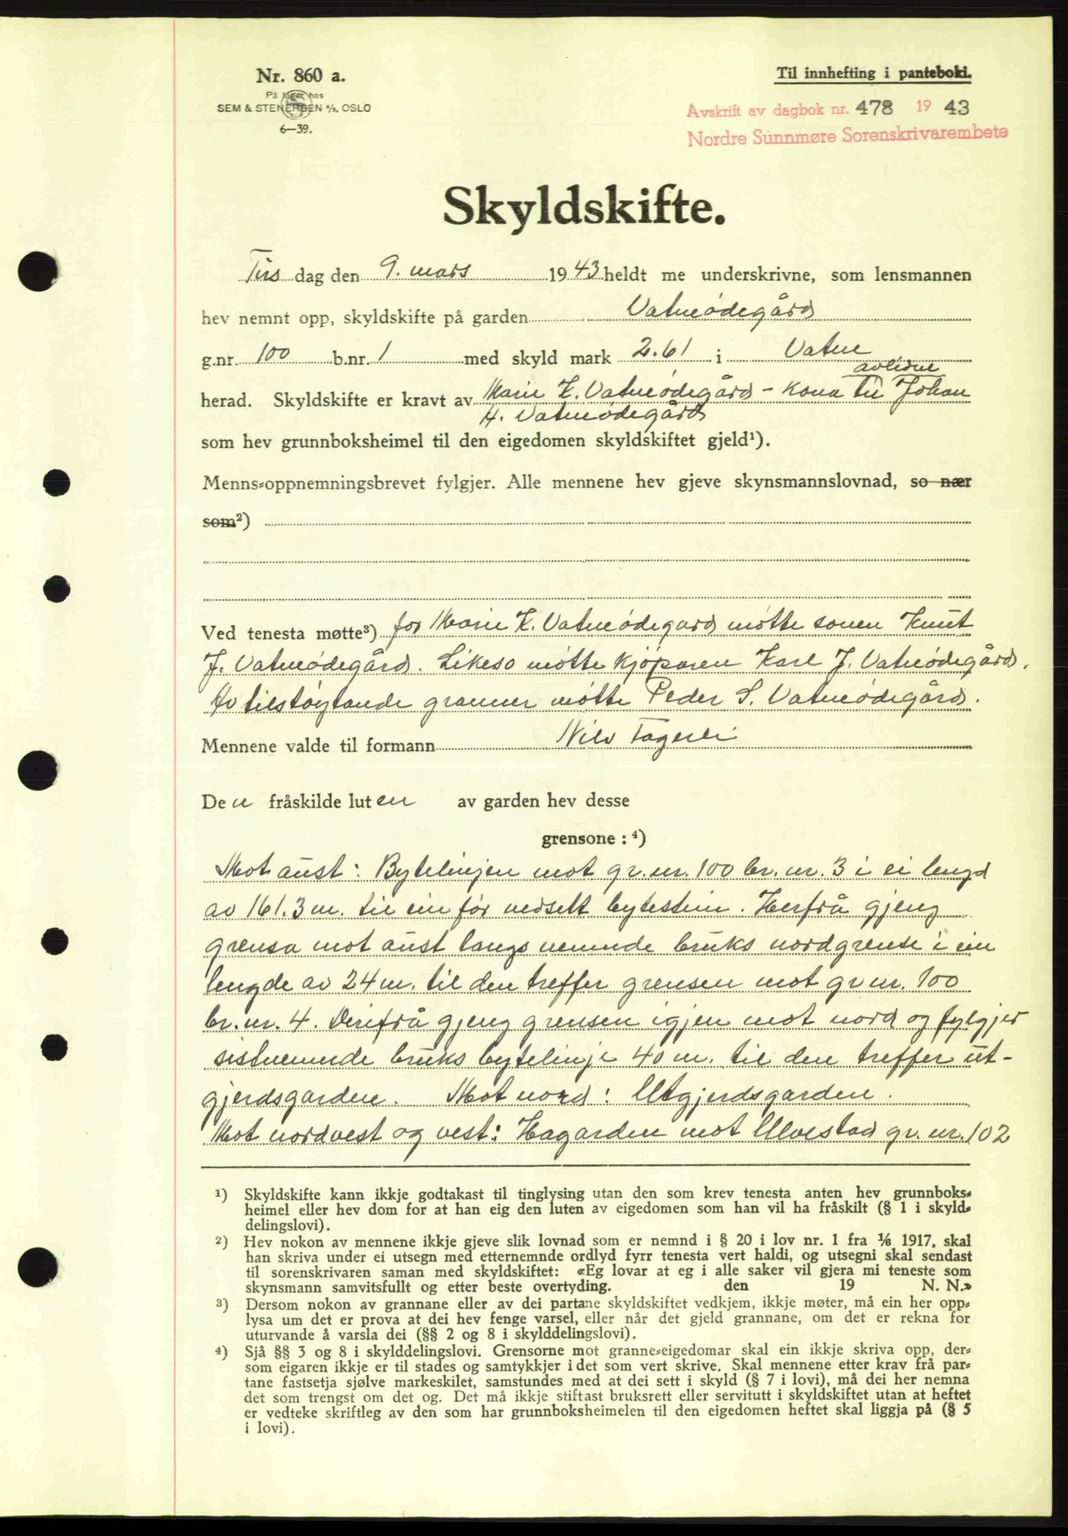 Nr. 860 a.
På lager hos
SEM & STENERSEN A/S. OSLO
6—39.
Til innhefting i panteboki.
Avskrift av dagbok nr. 478 1943
Nordre Sunnmøre Sorenskrivarembete
Skyldskifte.
Tirsdag den 9. mars 1943 heldt me underskrivne, som lensmannen
hev nemnt opp, skyldskifte på garden Vatneødegård
g.nr. 100 b.nr. 1 med skyld mark 2.61 i Vatne
avlidne
herad. Skyldskifte er kravt av Marie K. Vatneødegård - Kona til Johan
H. Vatneødegård
som hev grunnboksheimel til den eigedomen skyldskiftet gjeld¹).
Menns-oppnemningsbrevet fylgjer. Alle mennene hev gjeve skynsmannslovnad, so nær
som²)
Ved tenesta møtte³) for Marie K. Vatneødegård møtte sonen Knut
J. Vatneødegård. Likeso møtte kjøparen Karl J. Vatneødegård.
Av tilstøytande granner møtte Peder S. Vatneødegård.
Mennene valde til formann Nils Fagerli
Den fråskilde luten av garden hev desse
grensone : ⁴)
Mot aust: Bytelinjen mot gr. nr. 100 br. nr. 3 i ei lengd
av 161.3 m. til ein før nedsett bytestein. Herfrå gjeng
grensa mot aust langs nemnde bruks nordgrense i ein
lengde av 24 m. til den treffer grensen mot gr nr. 100
br. nr. 4. Derifrå gjeng grensen igjen mot nord og fylgjer
sistnemnde bruks bytelinje 40 m. til den treffer ut-
gjerdsgarden. Mot nord: Utgjerdsgarden.
Mot nordvest og vest: Hagarden mot Ulvestad gr. nr. 102
¹) Skyldskifte kann ikkje godtakast til tinglysing utan den som krev tenesta anten hev grunnboks-
heimel eller hev dom for at han eig den luten av eigedomen som han vil ha fråskilt (§ 1 i skyld-
delingslovi).
²) Hev nokon av mennene ikkje gjeve slik lovnad som er nemnd i § 20 i lov nr. 1 fra ⅙ 1917, skal
han skriva under ei utsegn med etternemnde ordlyd fyrr tenesta vert haldi, og utsegni skal sendast
til sorenskrivaren saman med skyldskiftet: «Eg lovar at eg i alle saker vil gjera mi teneste som
skynsmann samvitsfullt og etter beste overtyding. den 19 N. N.»
³) Dersom nokon av grannane eller av dei partane skyldskiftet vedkjem, ikkje møter, må ein her opp-
lysa um det er prova at dei hev fenge varsel, eller når det gjeld grannane, om det er rekna for
uturvande å varsla dei (§§ 2 og 8 i skylddelingslovi).
⁴) Sjå §§ 3 og 8 i skylddelingslovi. Grensorne mot granne-eigedomar skal ein ikkje skriva opp, der-
som eigaren ikkje er til stades og samtykkjer i det som vert skrive. Skal mennene etter krav frå par-
tane fastsetja sjølve markeskilet, samstundes med at dei sett i skyld (§ 7 i lovi), må dei her nemna
det som trengst om det og. Det må ikkje stiftast bruksrett eller servitutt i skyldskiftet utan at heftet
er vedteke skriftleg av den som har grunnboksheimelen til den eigedomen heftet skal liggja på (§ 5
i lovi).